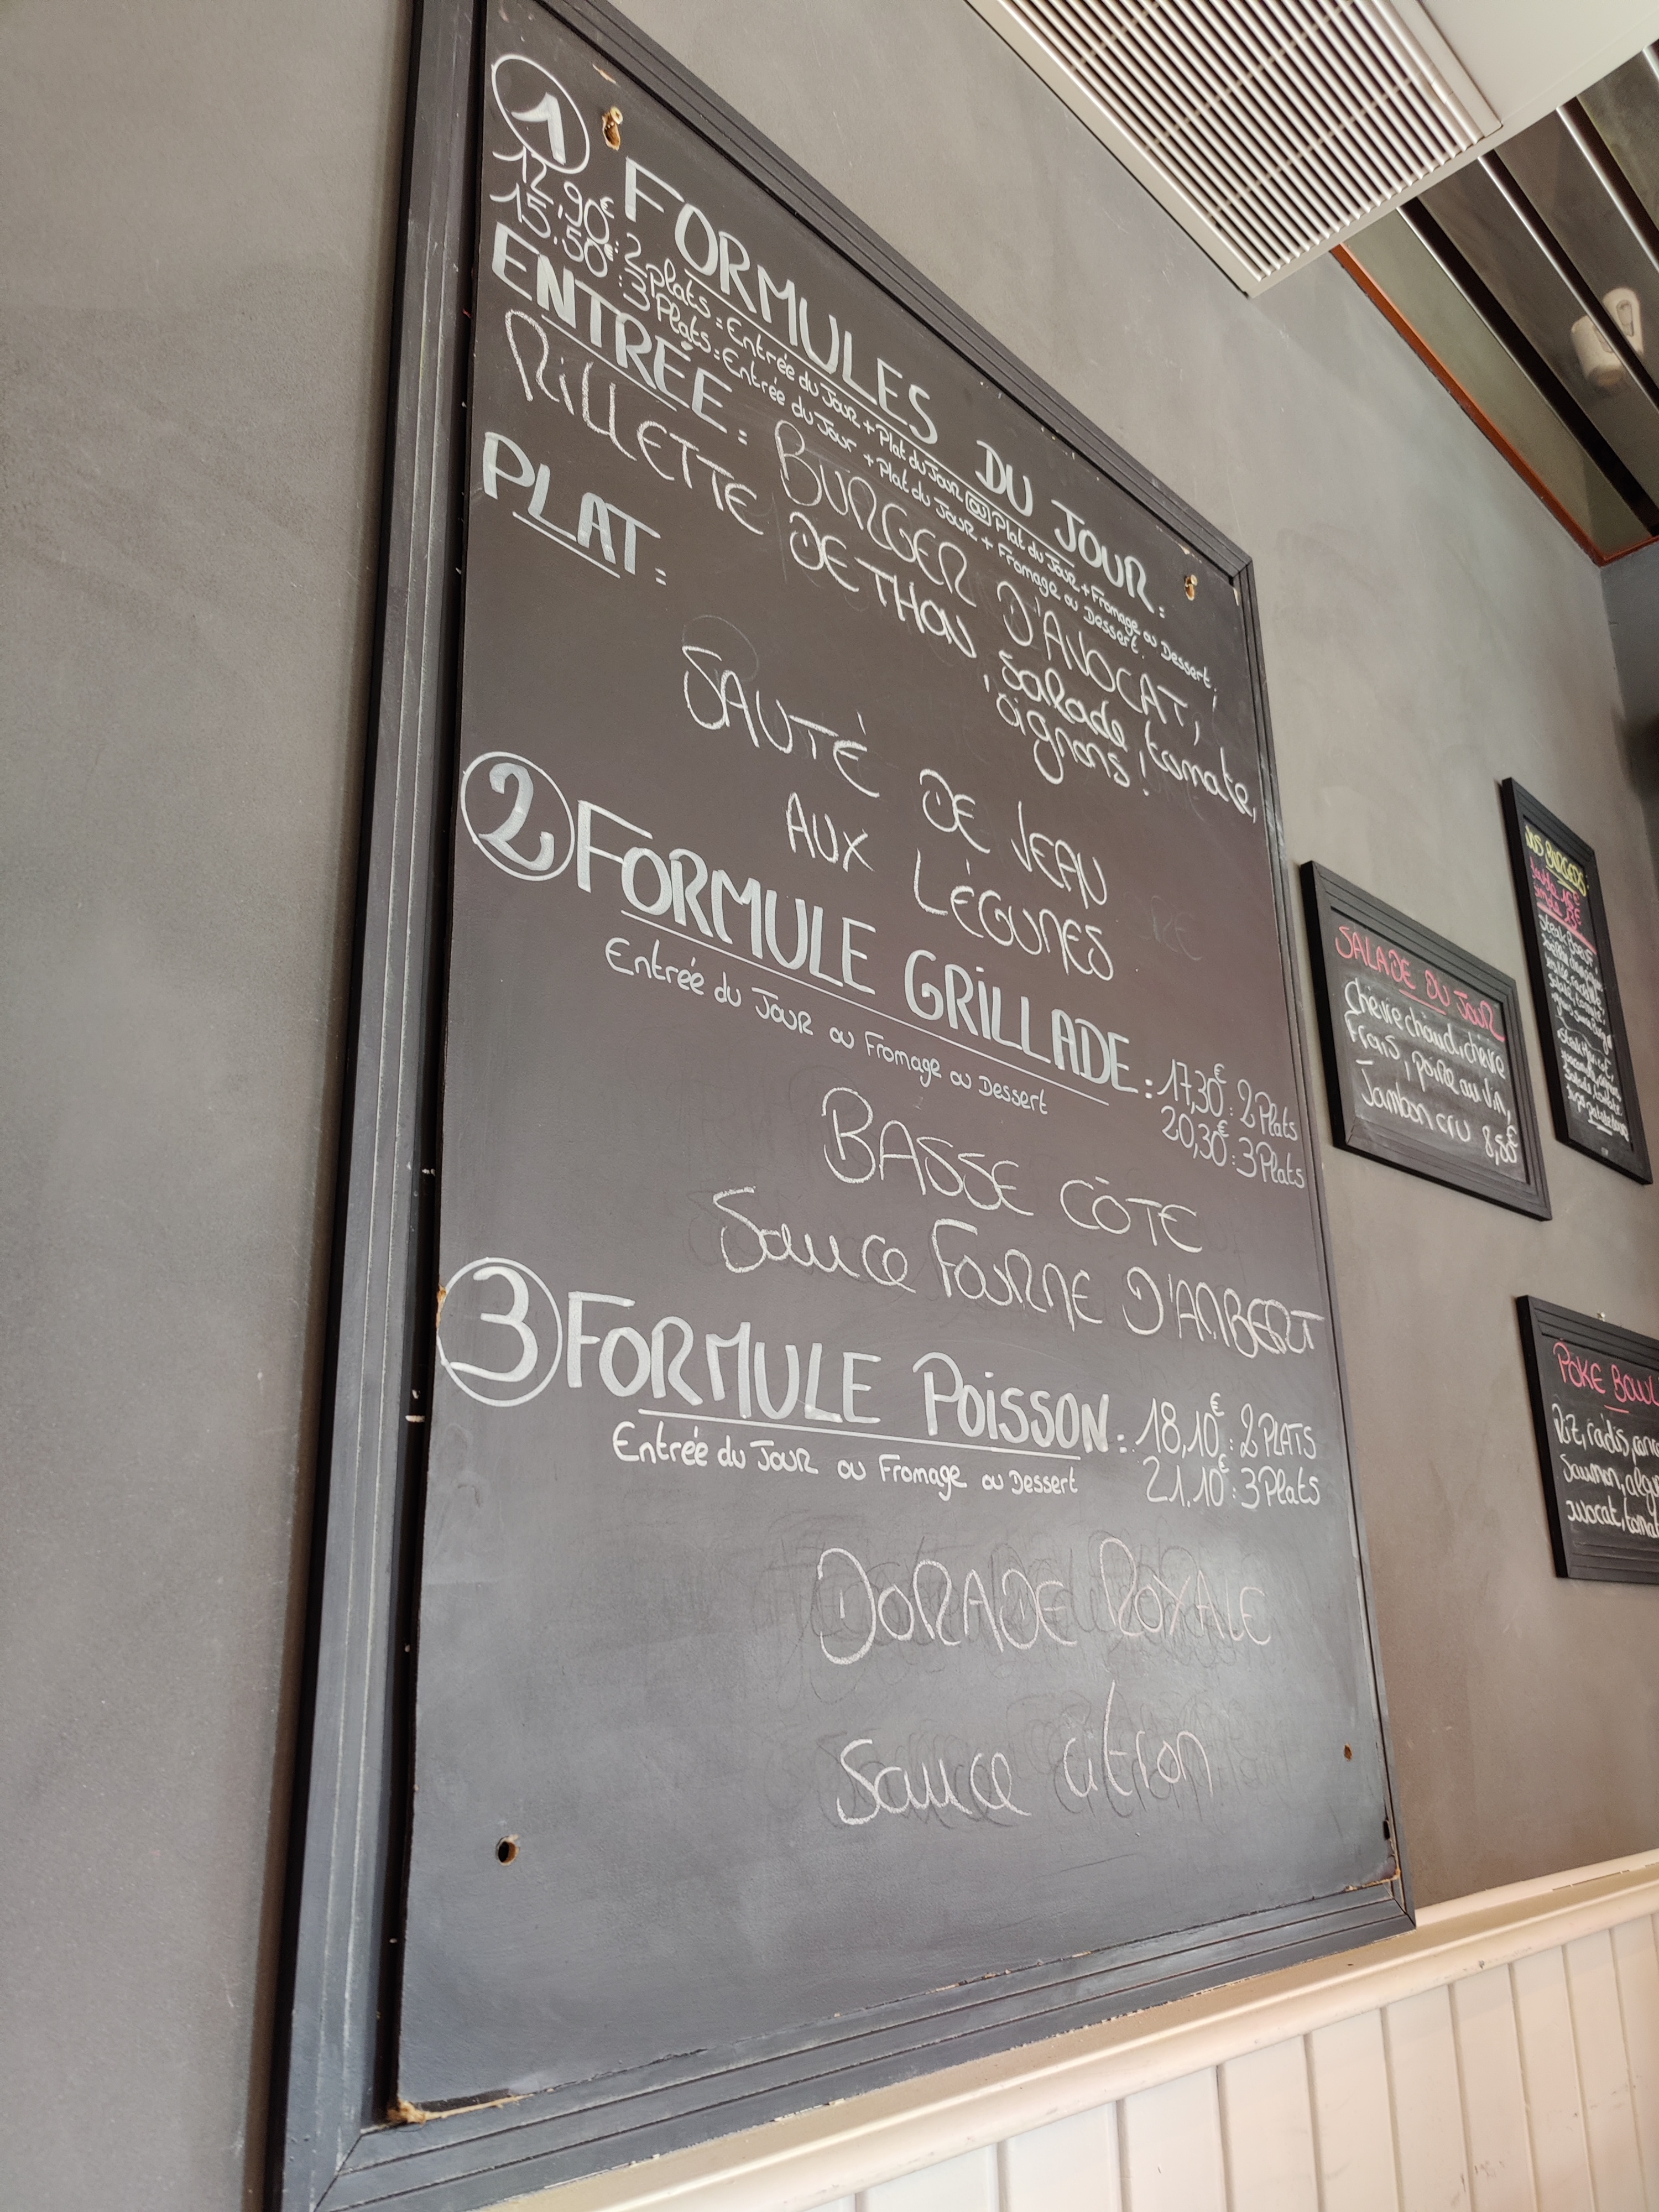 1 FORMULES DU JOUR :
12,90€ : 2 plats : Entrée du JOUR + Plat du JOUR OU Plat du JOUR + Fromage ou Dessert,
15.50€ : 3 Plats : Entrée du JOUR + Plat du JOUR + Fromage ou Dessert.
ENTRÉE : BURGER D'AVOCAT,
RILLETTE DE THON, salade, tomate,
oignons !
PLAT :
SAUTÉ DE VEAU
AUX LÉGUMES
2 FORMULE GRILLADE : 17,30€ : 2 Plats
Entrée du JOUR ou Fromage ou Dessert 20,30€ : 3 Plats
BASSE CÔTE
Sauce FOURME D'AMBERT
3 FORMULE POISSON : 18,10€ : 2 PLATS
Entrée du JOUR ou Fromage ou Dessert 21.10€ : 3 Plats
DORADE ROYALE
Sauce citron
SALADE DU JOUR
Chèvre chaud, chèvre
Frais, poire au vin,
Jambon cru 8,50€
BURGERS
POKE BOWL
Riz, radis,
saumon,
avocat,